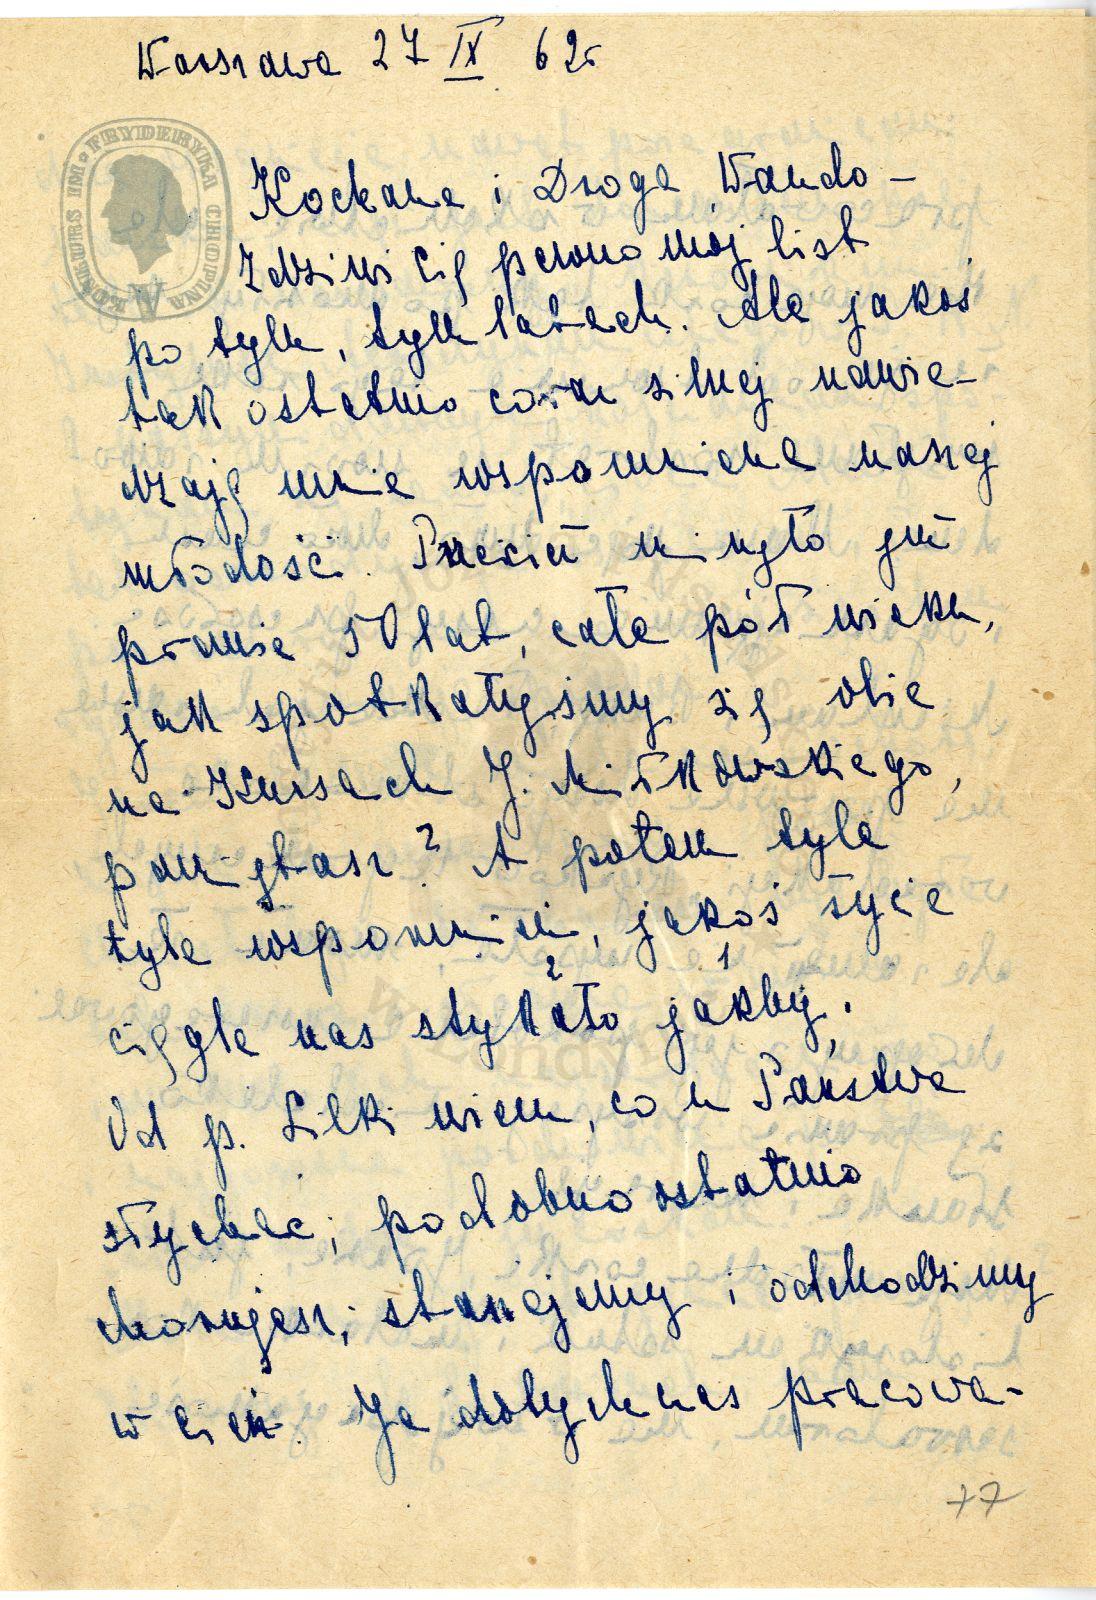 Warszawa 27 IX 62r
KONKURS IM. FRYDERYKA CHOPINA
Kochana i Droga Wando -
Zdziwi Cię pewno mój list
po tylu, tylu latach. Ale jakoś
tak ostatnio coraz silniej nawie-
dzają mnie wspomnienia naszej
młodości. Przecież minęło już
prawie 50 lat, całe pół wieku,
jak spotkałyśmy się obie
na Kursach J. Miłkowskiego,
pamiętasz? A potem tyle
tyle wspomnień, jakoś życie
2 1
ciągle nas stykało jakby.
Od p. Lilki wiem, co u Państwa
słychać; podobno ostatnio
chorujesz; starzejemy i odchodzimy
w cień. Ja dotychczas pracowa-
77